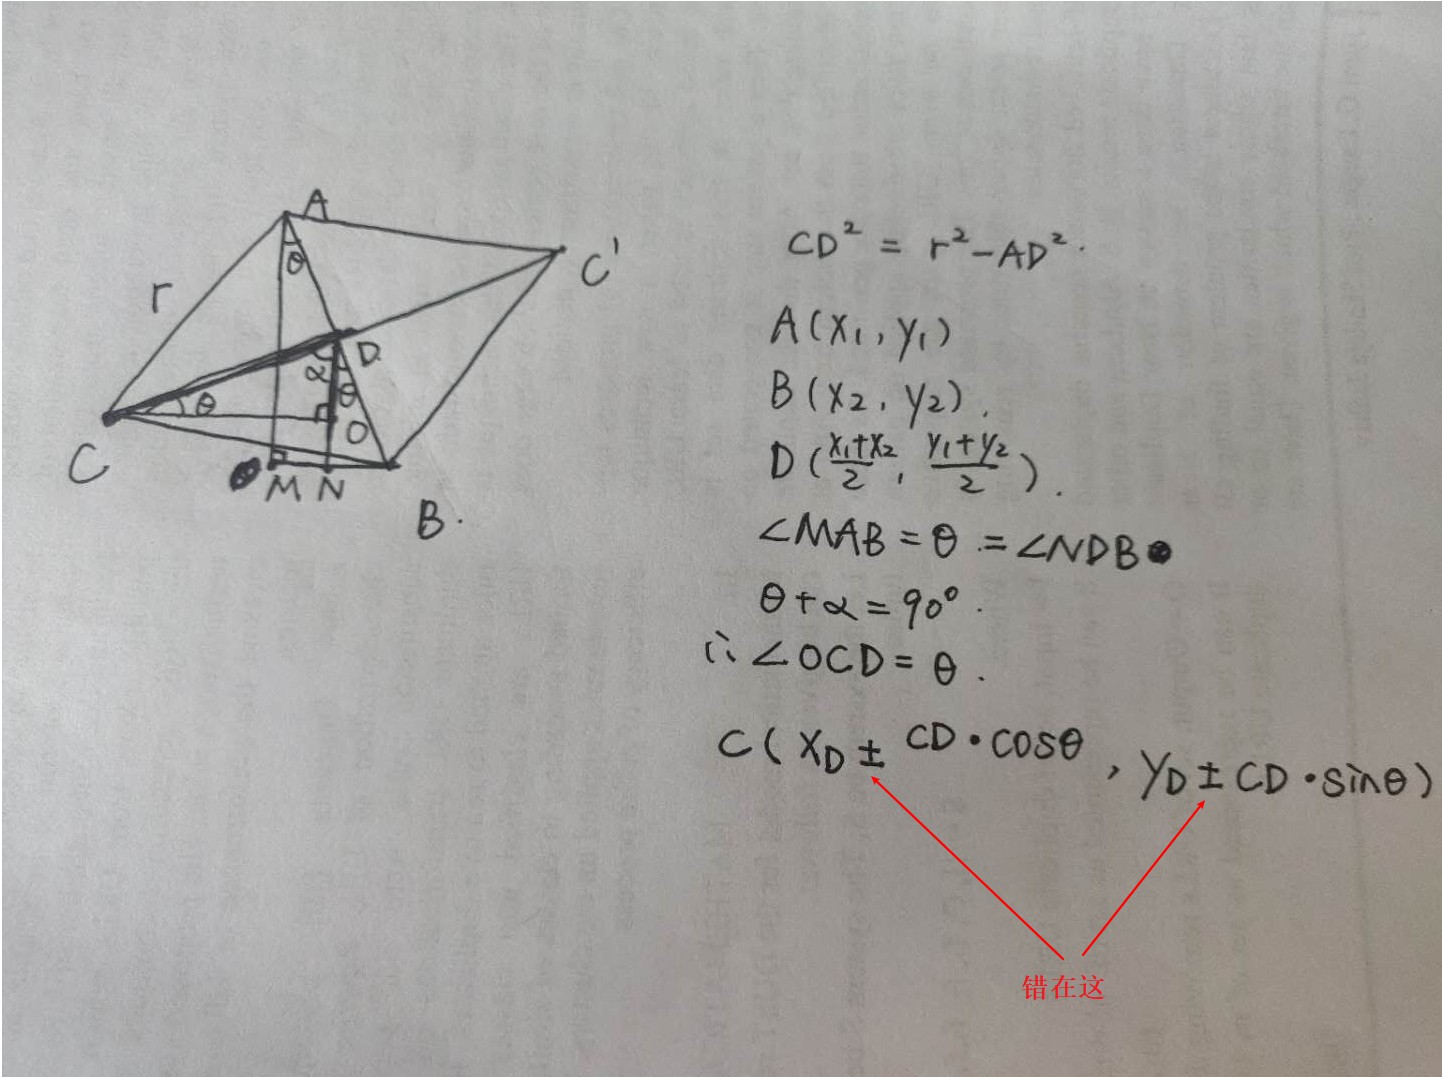 A
θ
C'
r
D
α
θ
θ
O
C
M N
B.
CD² = r²-AD².
A(x₁, y₁)
B(x₂, y₂).
D(\frac{x₁+x₂}{2}, \frac{y₁+y₂}{2}).
∠MAB = θ = ∠NDB
θ+α=90°.
∴ ∠OCD= θ.
C( X_D ± CD·cosθ, y_D ± CD·sinθ)
错在这